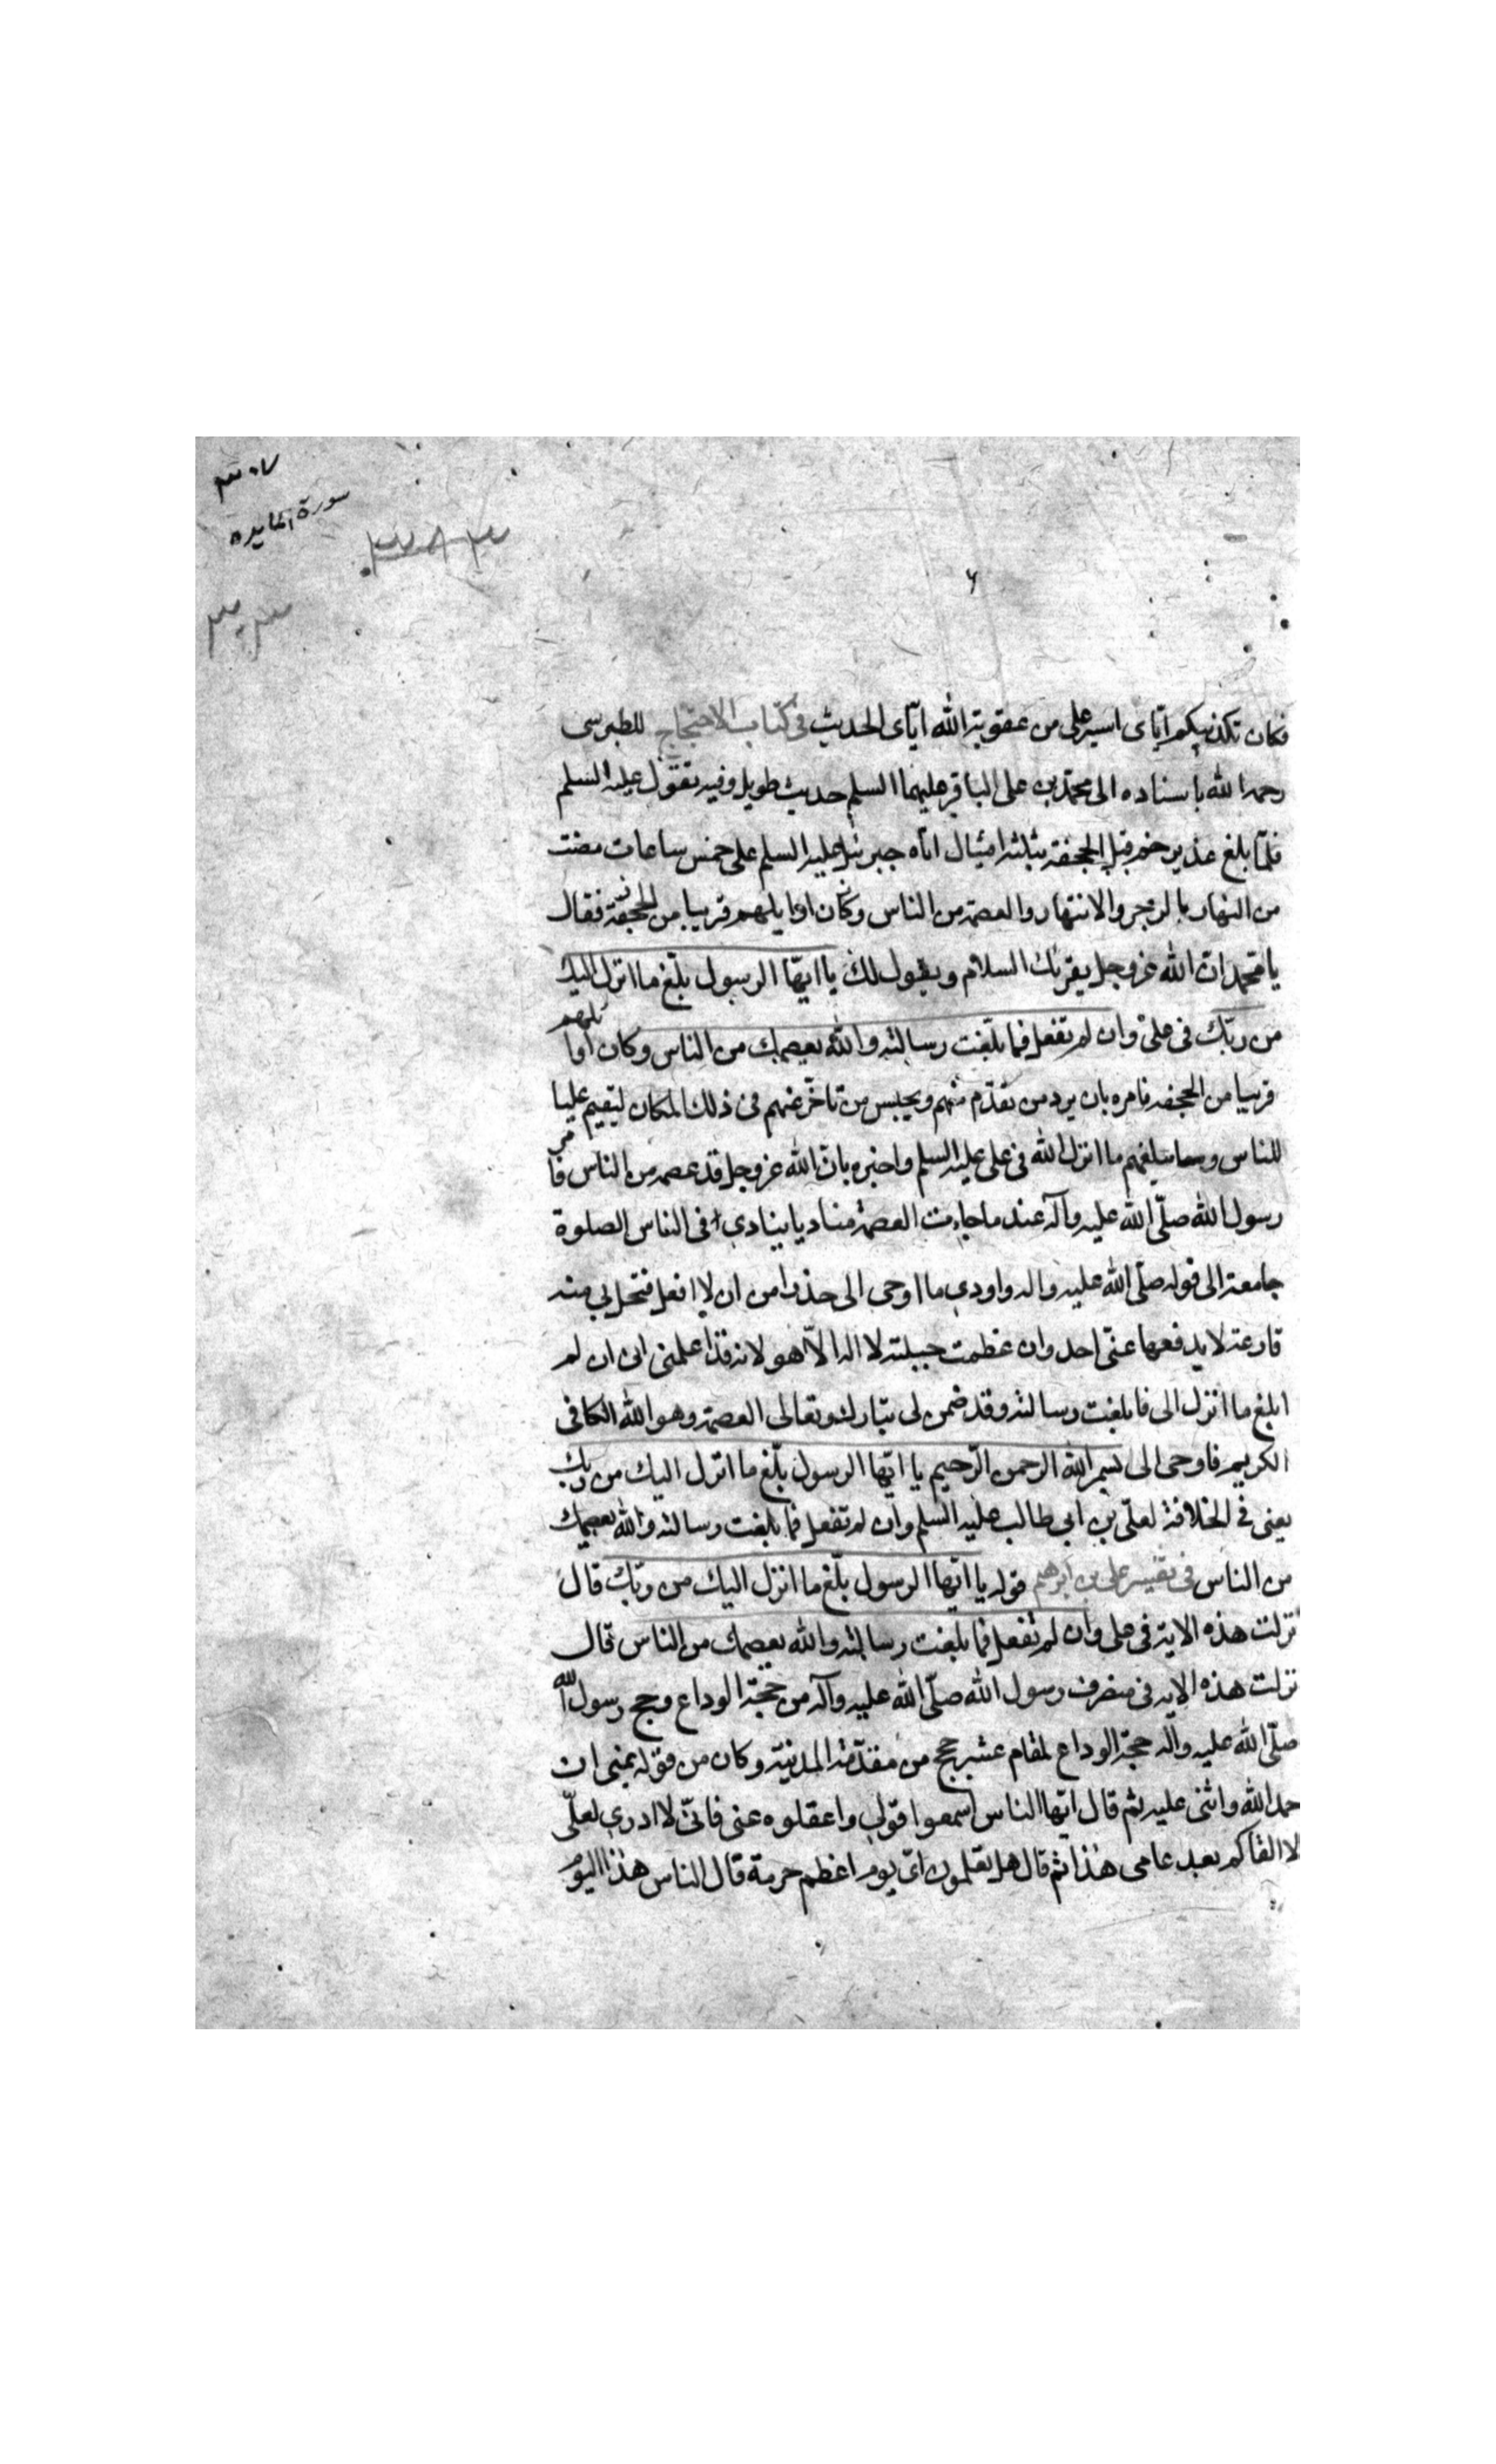 ٣٠٧
سورة المايده
فكان تكذيبكم ايّاى ايسر على من عقوبة الله ايّاى الحديث فى كتاب الاحتجاج للطبرسى
رحمه الله باسناده الى محمّد بن على الباقر عليهما السلم حديث طويل وفيه يقول عليه السلم
فلمّا بلغ غدير خم قبل الجحفة بثلثة اميال اتاه جبرئيل عليه السلم على خمس ساعات مضت
من النهار بالزجر والانتهار والعصمة من الناس وكان اوايلهم قريبا من الجحفة فقال
يا محمد انّ الله عز وجل يقرئك السلام ويقول لك يا ايّها الرسول بلّغ ما انزل اليك
من ربّك فى علىّ وان لم تفعل فما بلّغت رسالته والله يعصمك من الناس وكان اوا
ئلهم
قريبا من الجحفه فامره بان يرد من تقدّم منهم ويحبس من تاخّر عنهم فى ذلك المكان ليقيم عليا
للناس ويبلغهم ما انزل الله فى على عليه السلم واخبره بانّ الله عز وجل قد عصمه من الناس فا
مر
رسول الله صلّى الله عليه وآله عند ما جاءت العصمة مناديا ينادى فى الناس الصلوة
جامعة الى قوله صلّى الله عليه واله واودى ما اوحى الى حذرا من ان لا افعل فتحل بى منه
قارعة لا يدفعها عنّى احد وان عظمت حيلته لا اله الّا هو لانه قد اعلمنى انى ان لم
ابلغ ما انزل الى فما بلغت رسالته وقد ضمن لى تبارك وتعالى العصمة وهو الله الكافى
الكريم فاوحى الى بسم الله الرحمن الرّحيم يا ايّها الرسول بلّغ ما انزل اليك من ربك
يعنى فى الخلافة لعلىّ بن ابى طالب عليه السلم وان لم تفعل فما بلغت رسالته والله يعصمك
من الناس فى تفسير على بن ابرهيم قوله يا ايّها الرسول بلّغ ما انزل اليك من ربّك قال
نزلت هذه الاية فى على وان لم تفعل فما بلغت رسالته والله يعصمك من الناس قال
نزلت هذه الايه فى منصرف رسول الله صلّى الله عليه وآله من حجّة الوداع وحج رسول الله
صلّى الله عليه واله حجّة الوداع لمقام عشر حجج من مقدّمة المدنية وكان من قوله بمنى ان
حمد الله واثنى عليه ثم قال ايّها الناس اسمعوا قولى واعقلوه عنى فانّى لا ادرى لعلّى
لا القاكم بعد عامى هذا ثم قال هل تعلمون اىّ يوم اعظم حرمة قال الناس هذا اليوم